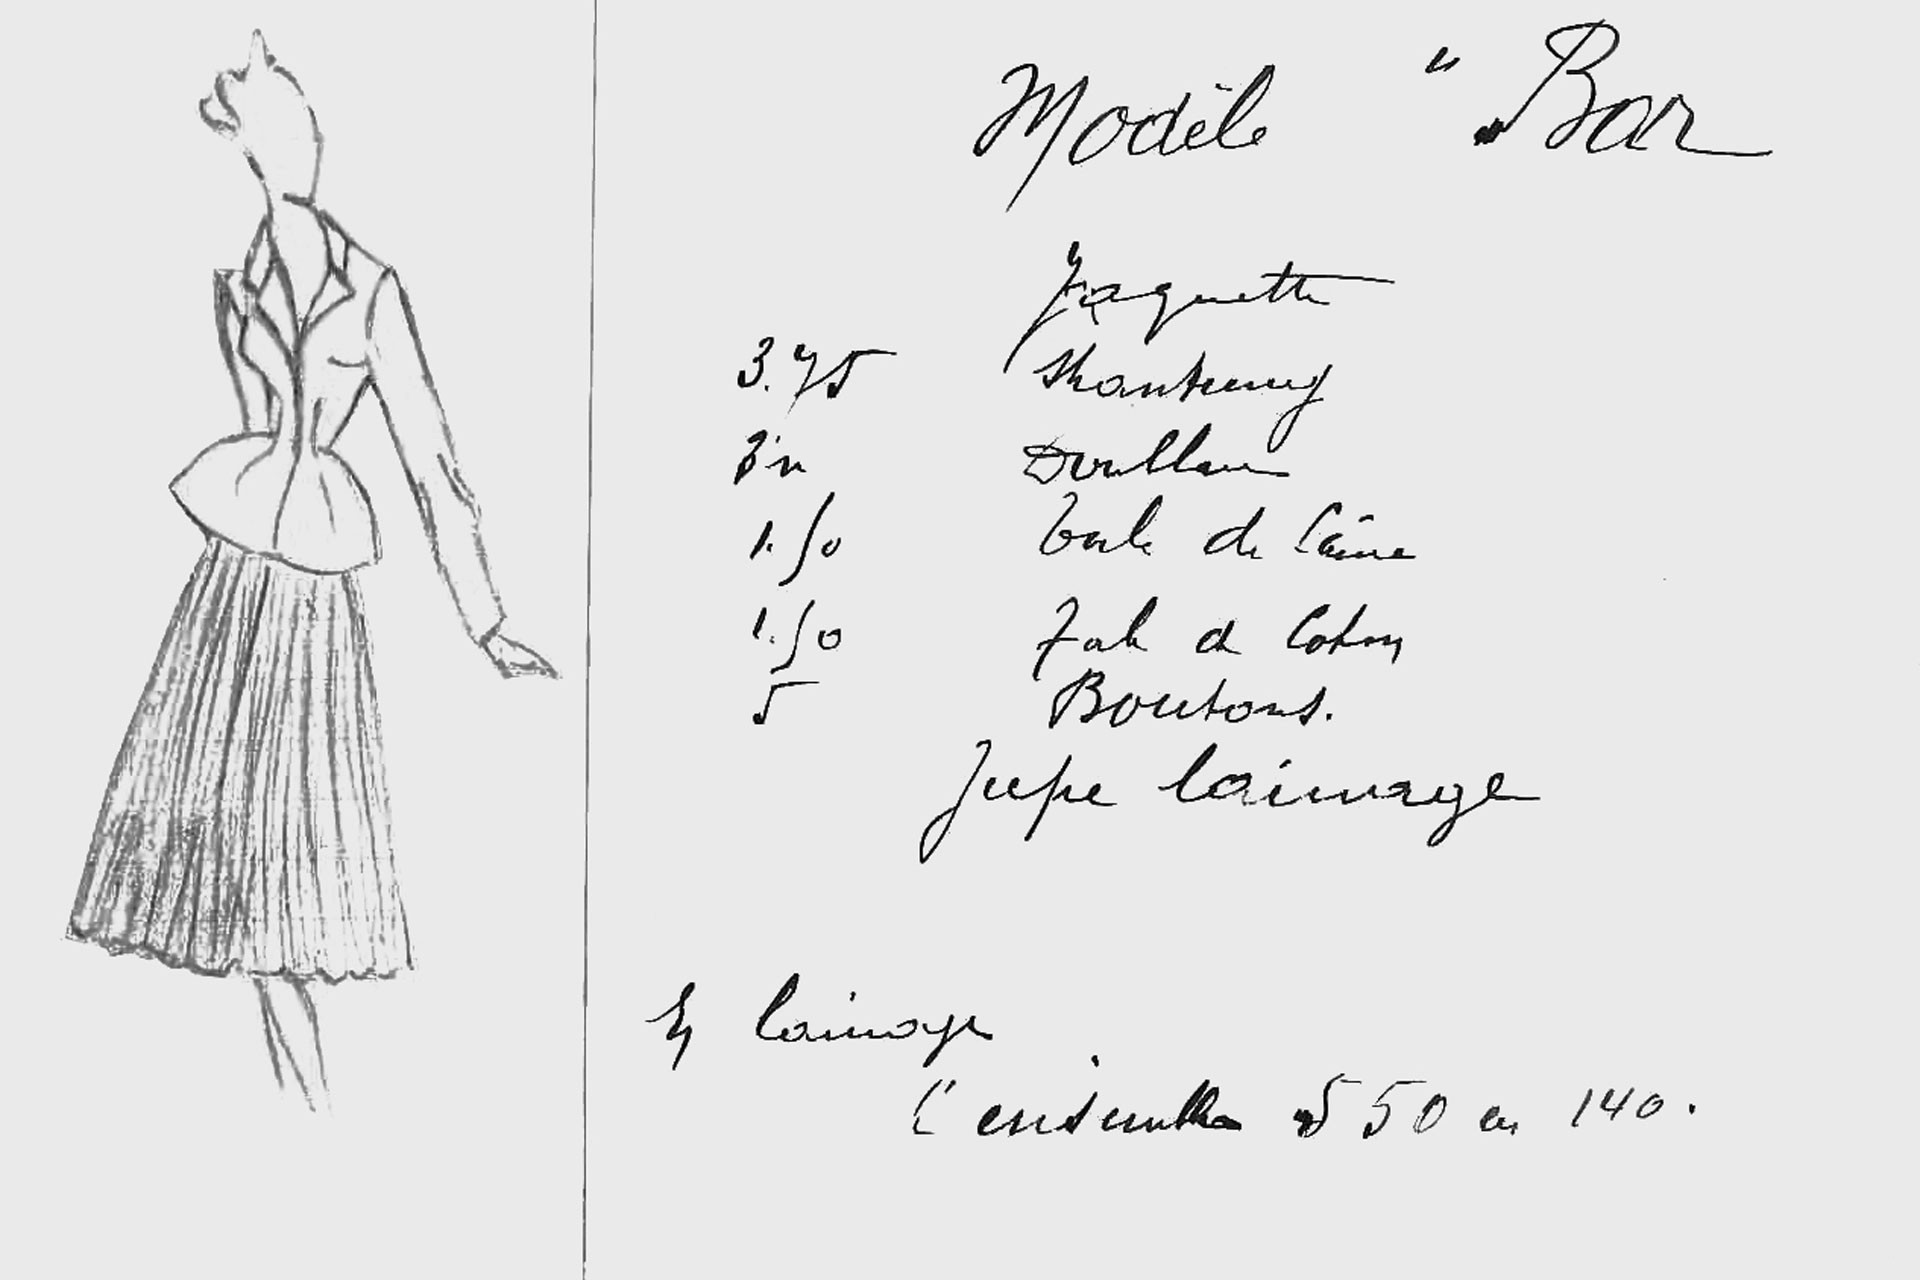 Modèle " Bar
Jaquette
3.75 Shantung
3 m Doublure
1.50 Toile de Laine
1.50 Toile de Coton
5 Boutons.
Jupe lainage
En lainage
L'ensemble 5 50 en 140.